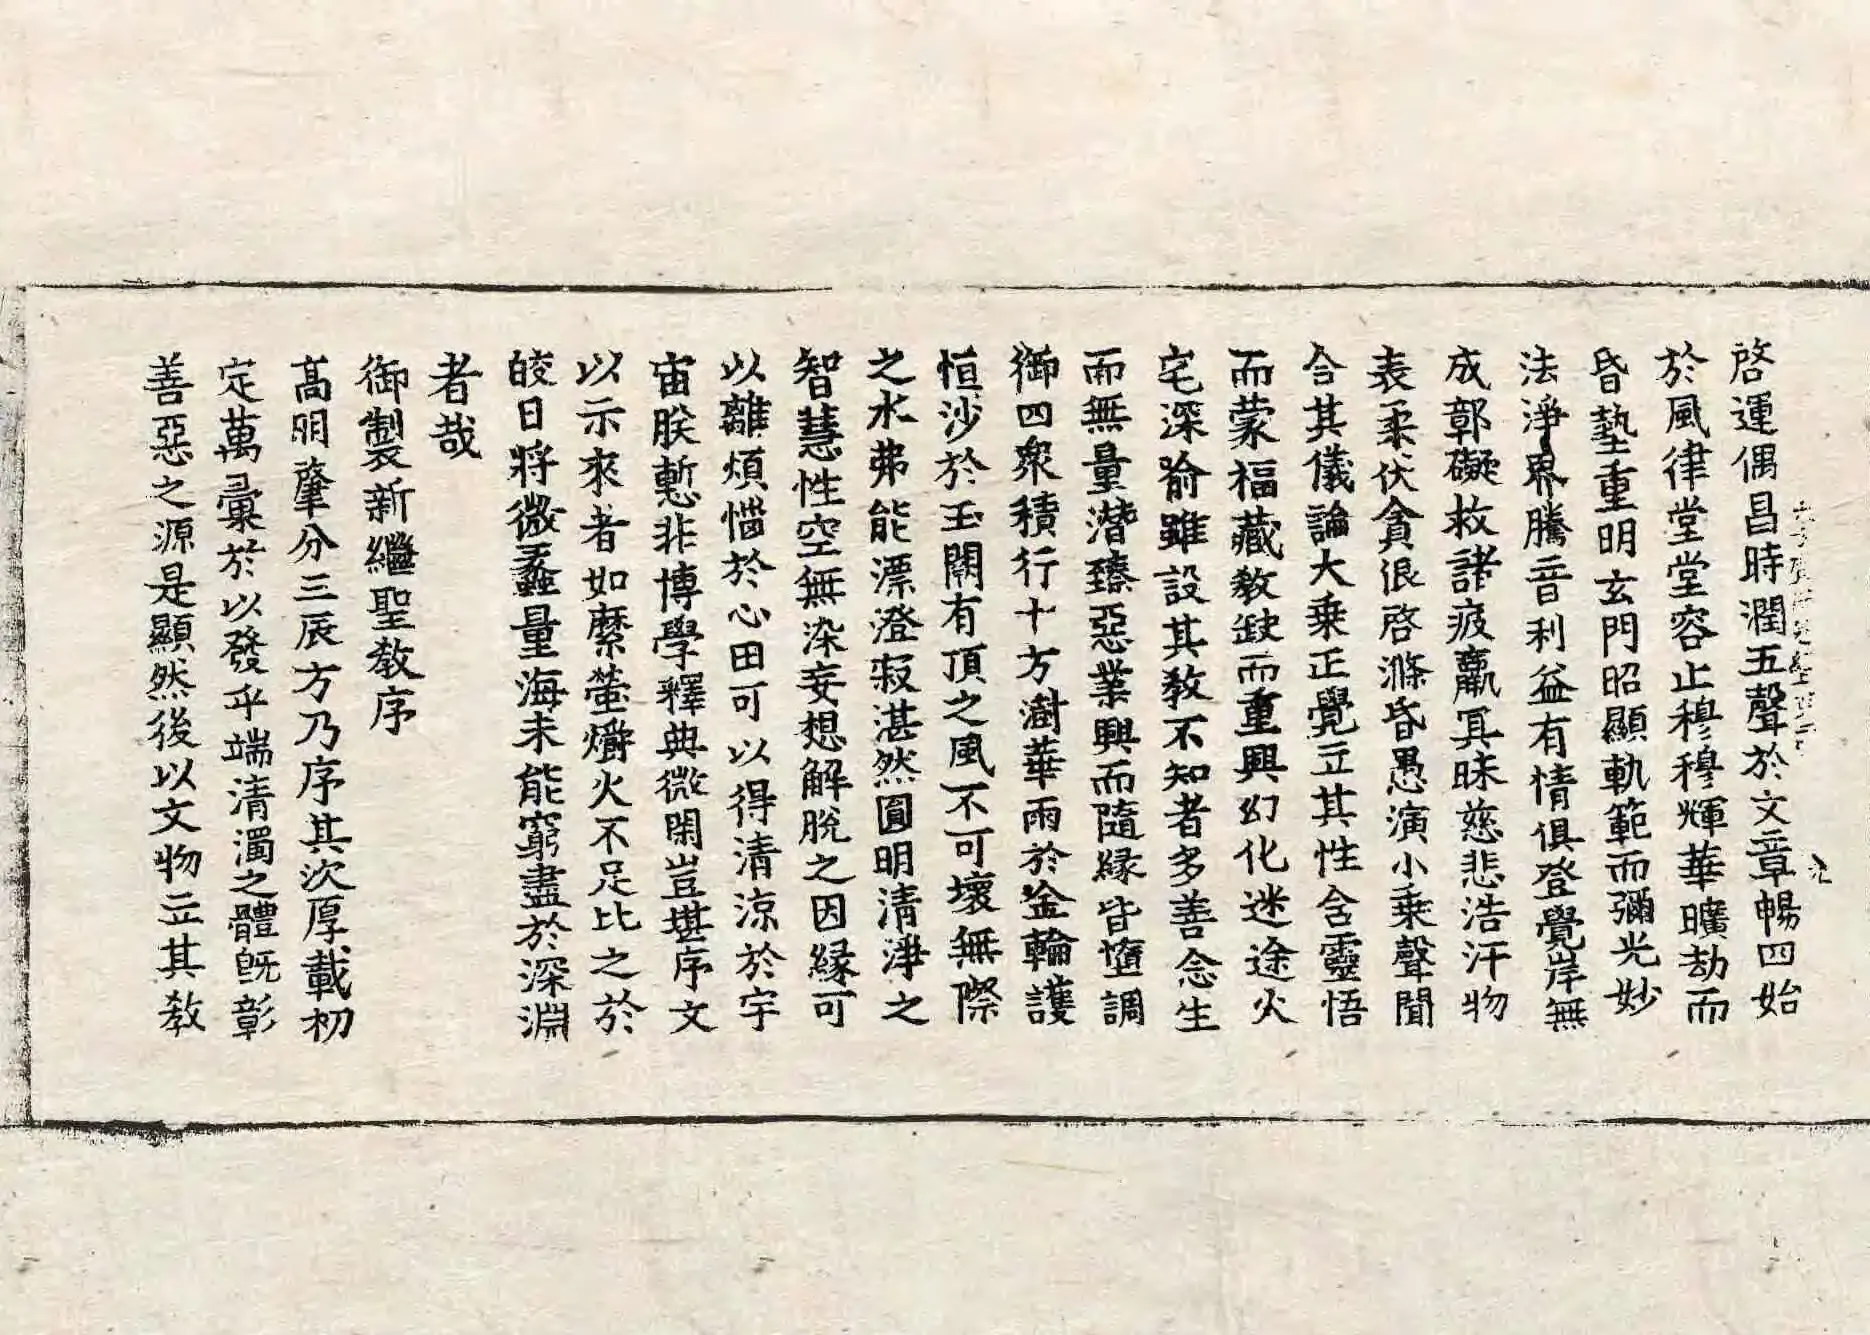 啓運偶昌時潤五聲於文章暢四始
於風律堂堂容止穆穆輝華曠劫而
昏墊重明玄門昭顯軌範而彌光妙
法淨界騰音利益有情俱登覺岸無
成鄣礙救諸疲羸冥昧慈悲浩汗物
表柔伏貪很啓滌昏愚演小乘聲聞
合其儀論大乘正覺立其性含靈悟
而蒙福藏教缺而重興幻化迷途火
宅深喻雖設其教不知者多善念生
而無量潛臻惡業興而隨緣皆墮調
御四衆積行十方澍華雨於金輪護
恒沙於玉闕有頂之風不可壞無際
之水弗能漂澄寂湛然圓明清淨之
智慧性空無染妄想解脫之因緣可
以離煩惱於心田可以得清涼於宇
宙朕慙非博學釋典微閑豈堪序文
以示來者如縻螢爝火不足比之於
皎日將微蠡量海未能窮盡於深淵
者哉
御製新繼聖教序
高明肇分三辰方乃序其次厚載初
定萬彙於以發乎端清濁之體旣彰
善惡之源是顯然後以文物立其教